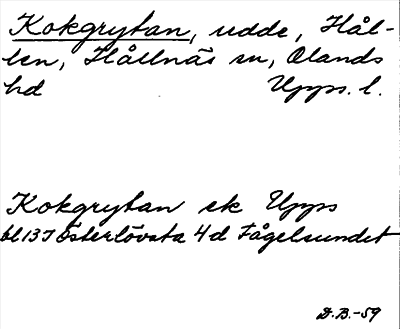 Kokgrytan, udde, Hål-
len, Hållnäs sn, Olands
hd Upps. l.
Kokgrytan ek Upps
bl 137 Österlövsta 4d Fågelsundet
D.B.-59